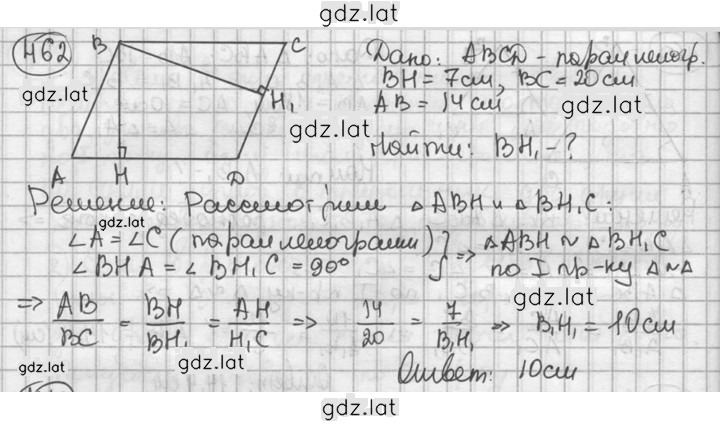 gdz.lat
462
B
C
Дано: ABCD - параллелогр.
gdz.lat
BH = 7см, BC = 20см
H₁
AB = 14см
gdz.lat
gdz.lat
Найти: BH₁ - ?
A
H
D
Решение: Рассмотрим △ABH и △BH₁C:
gdz.lat
∠A = ∠C (параллелограмм)
∠BHA = ∠BH₁C = 90°
} => △ABH ~ △BH₁C
по I пр-ку △~△
gdz.lat
=> AB/BC = BH/BH₁ = AH/H₁C => 14/20 = 7/B₁H₁ => B₁H₁ = 10см
gdz.lat
gdz.lat
gdz.lat
Ответ: 10см
gdz.lat